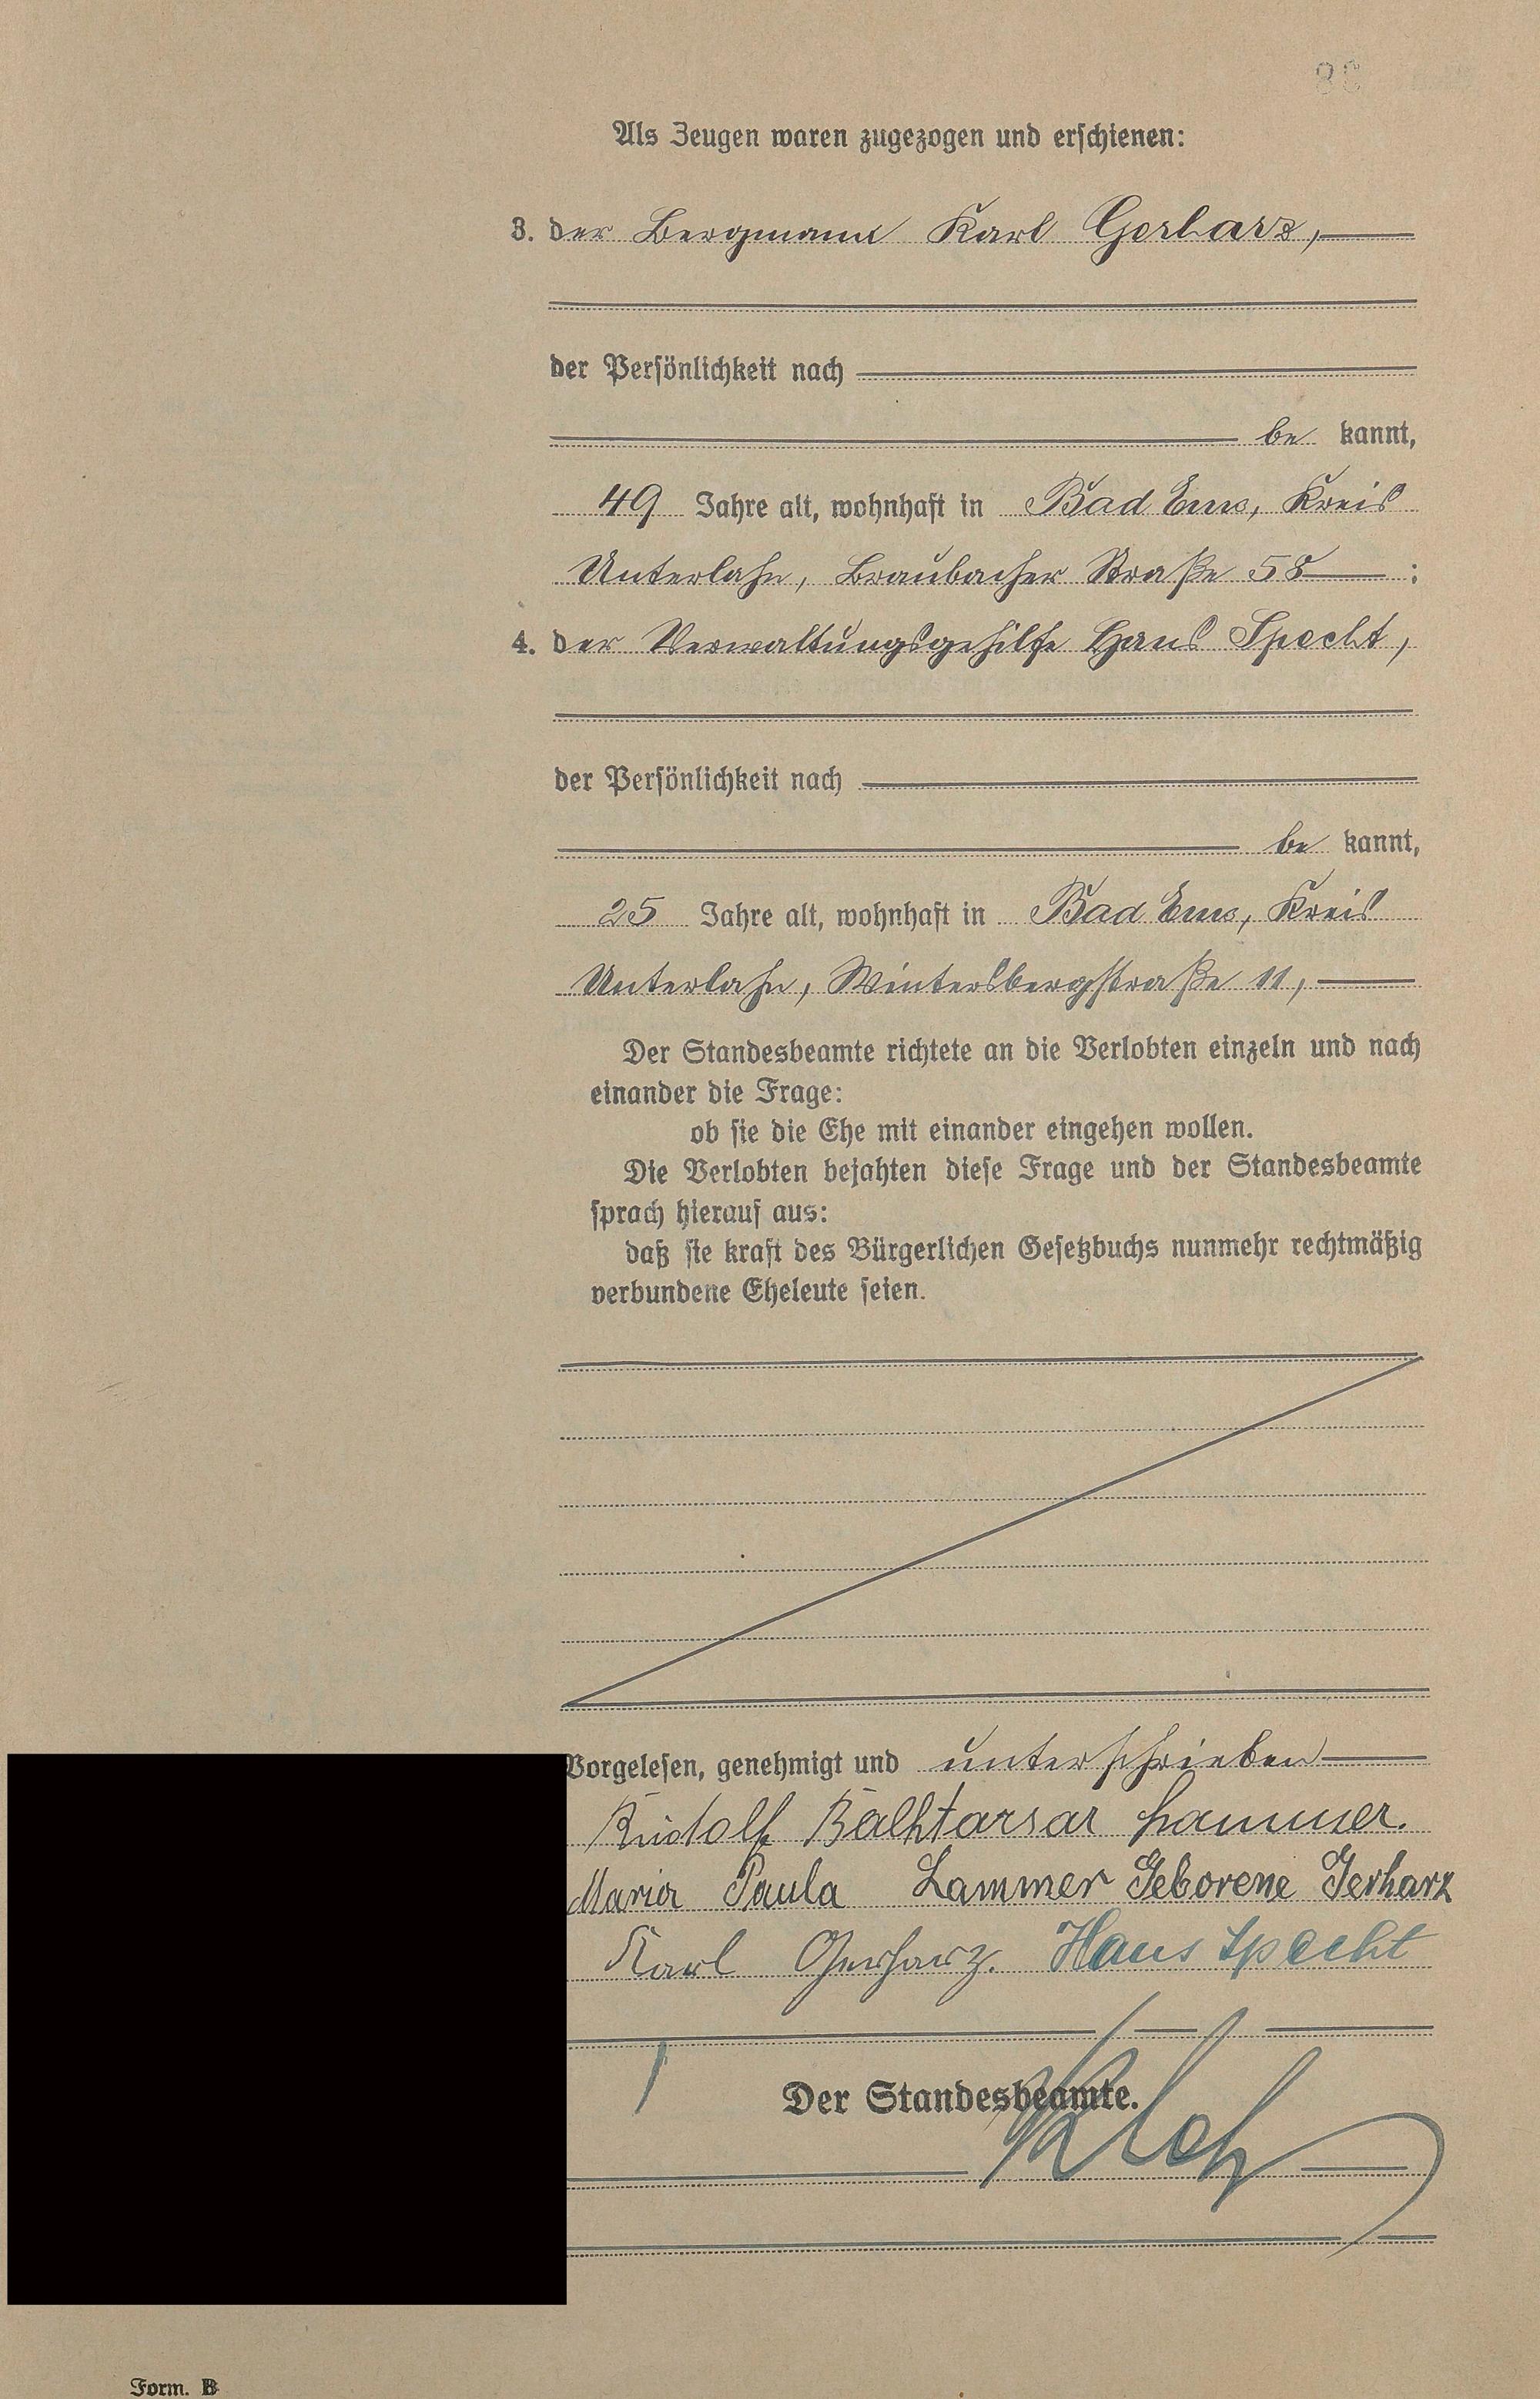 Als Zeugen waren zugezogen und erschienen:
3. der Bergmann Karl Gerharz,
der Persönlichkeit nach
be kannt,
49 Jahre alt, wohnhaft in Bad Ems, Kreis
Unterlahn, Braubacher Straße 58 :
4. der Verwaltungsgehilfe Hans Specht,
der Persönlichkeit nach
be kannt,
25 Jahre alt, wohnhaft in Bad Ems, Kreis
Unterlahn, Wintersbergstraße 11,
Der Standesbeamte richtete an die Verlobten einzeln und nach
einander die Frage:
ob sie die Ehe mit einander eingehen wollen.
Die Verlobten bejahten diese Frage und der Standesbeamte
sprach hierauf aus:
daß sie kraft des Bürgerlichen Gesetzbuchs nunmehr rechtmäßig
verbundene Eheleute seien.
Vorgelesen, genehmigt und unterschrieben
Rudolf Balhtarsar Lammer.
Maria Paula Lammer Geborene Gerharz
Karl Gerharz. Hans Specht
Der Standesbeamte.
Form. B